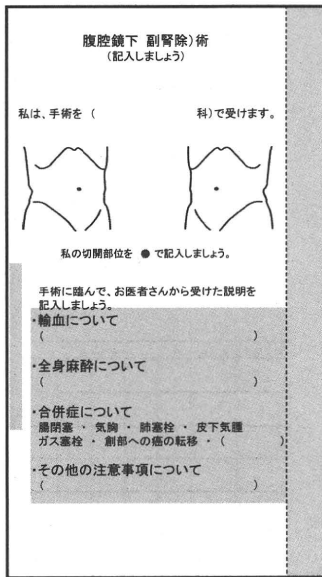 腹腔鏡下 副腎除)術
(記入しましょう)
私は、手術を ( 科)で受けます。
私の切開部位を ● で記入しましょう。
手術に臨んで、お医者さんから受けた説明を
記入しましょう。
・輸血について
( )
・全身麻酔について
( )
・合併症について
腸閉塞 ・ 気胸 ・ 肺塞栓 ・ 皮下気腫
ガス塞栓 ・ 創部への癌の転移 ・ ( )
・その他の注意事項について
( )